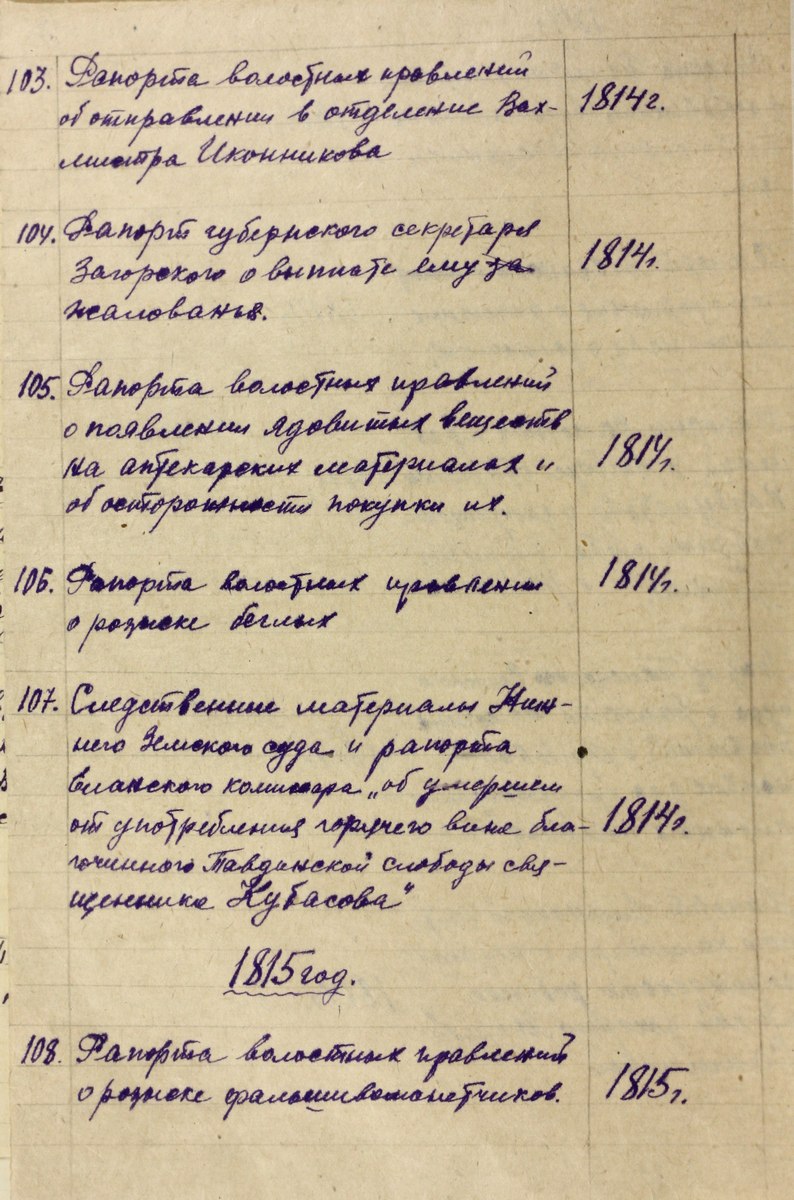 103. Рапорта волостных правлений
об отправлении в отделение Вах-
мистра Иконникова
1814 г.
104. Рапорт губернского секретаря
Загорского о выплате ему за
жалованья.
1814 г.
105. Рапорта волостных правлений
о появлении ядовитых веществ
на аптекарских материалах и
об осторожности покупки их.
1814 г.
106. Рапорта волостных правлений
о розыске беглых
1814 г.
107. Следственные материалы Ниж-
него Земского суда и рапорта
Еланского комиссара „об умершем
от употребления горячего вина бла-
гочинного Тавдинской слободы свя-
щенника Кубасова"
1814 г.
1815 год.
108. Рапорта волостных правлений
о розыске фальшивомонетчиков.
1815 г.